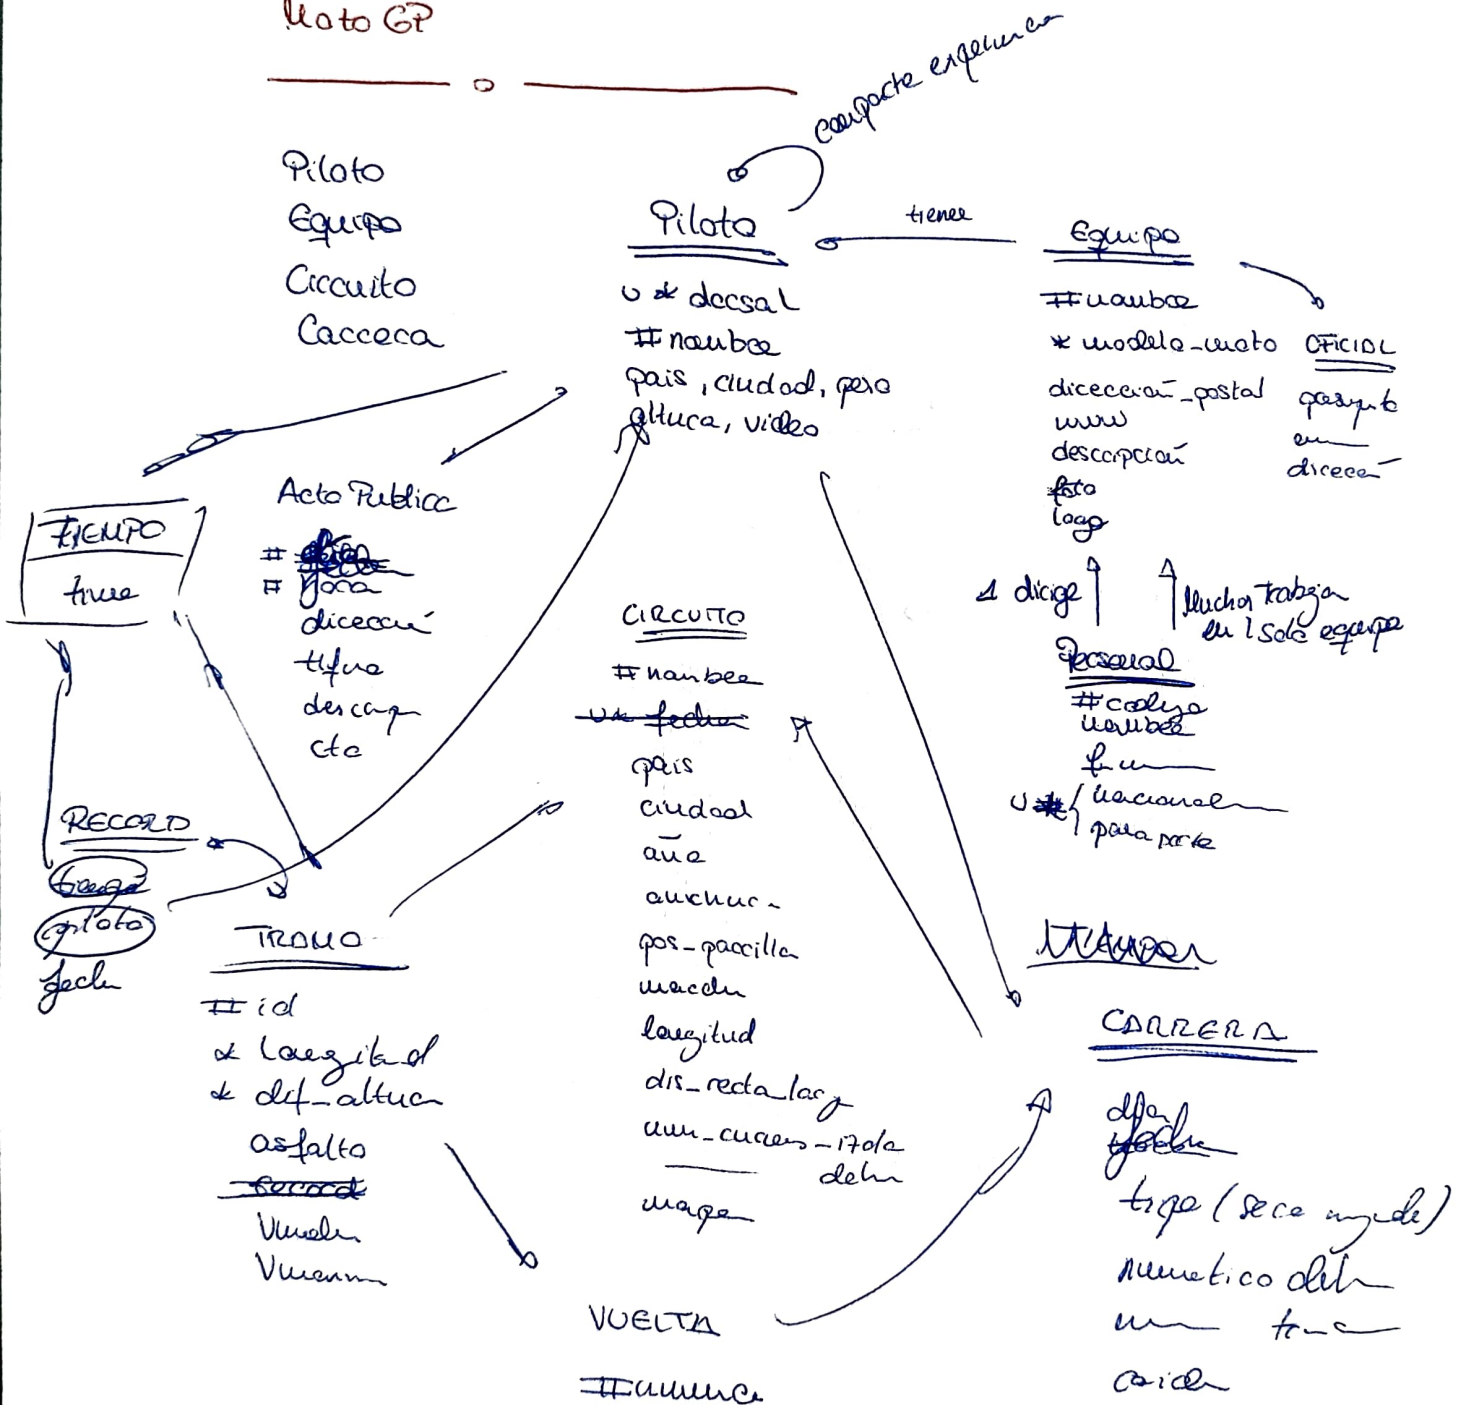 Moto GP
Piloto
Equipo
Circuito
Carrera
comparte experiencia
Piloto
U * dorsal
# nombre
pais, ciudad, peso
altura, video
tiene
Equipo
# nombre
* modelo_moto
dirección_postal
www
descripción
foto
logo
OFICIAL
dirección
1 dirige
Muchos trabajan
en 1 solo equipo
Personal
# codigo
nombre
U *
nacional
TIEMPO
time
Acto Publico
#
# hora
dirección
tlfno
descrip
cto
RECORD
tiempo
piloto
fecha
TRAMO
# id
* longitud
* dif_altura
asfalto
record
Vmedia
CIRCUITO
# nombre
U* fecha
pais
ciudad
año
anchura
pos_parrilla
longitud
dis_recta_larg
num_curvas_izda
dcha
mapa
VUELTA
# numero
CARRERA
fecha
tipo (seco mojado)